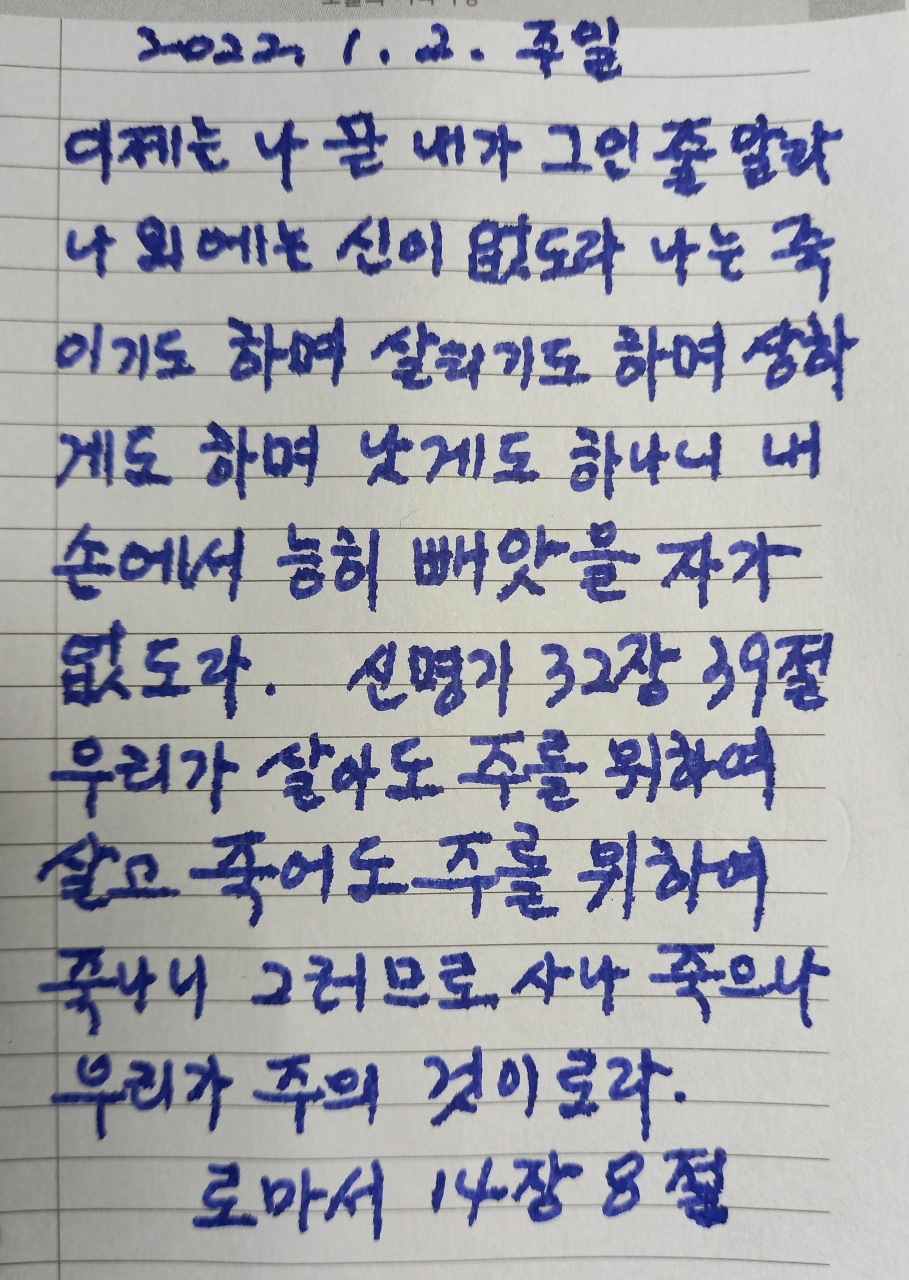 2022. 1. 2. 주일
이제는 나 곧 내가 그인 줄 알라
나 외에는 신이 없도라 나는 죽
이기도 하며 살리기도 하며 상하
게도 하며 낫게도 하나니 내
손에서 능히 빼앗을 자가
없도라. 신명기 32장 39절
우리가 살아도 주를 위하여
살고 죽어도 주를 위하여
죽나니 그러므로 사나 죽으나
우리가 주의 것이로라.
로마서 14장 8절